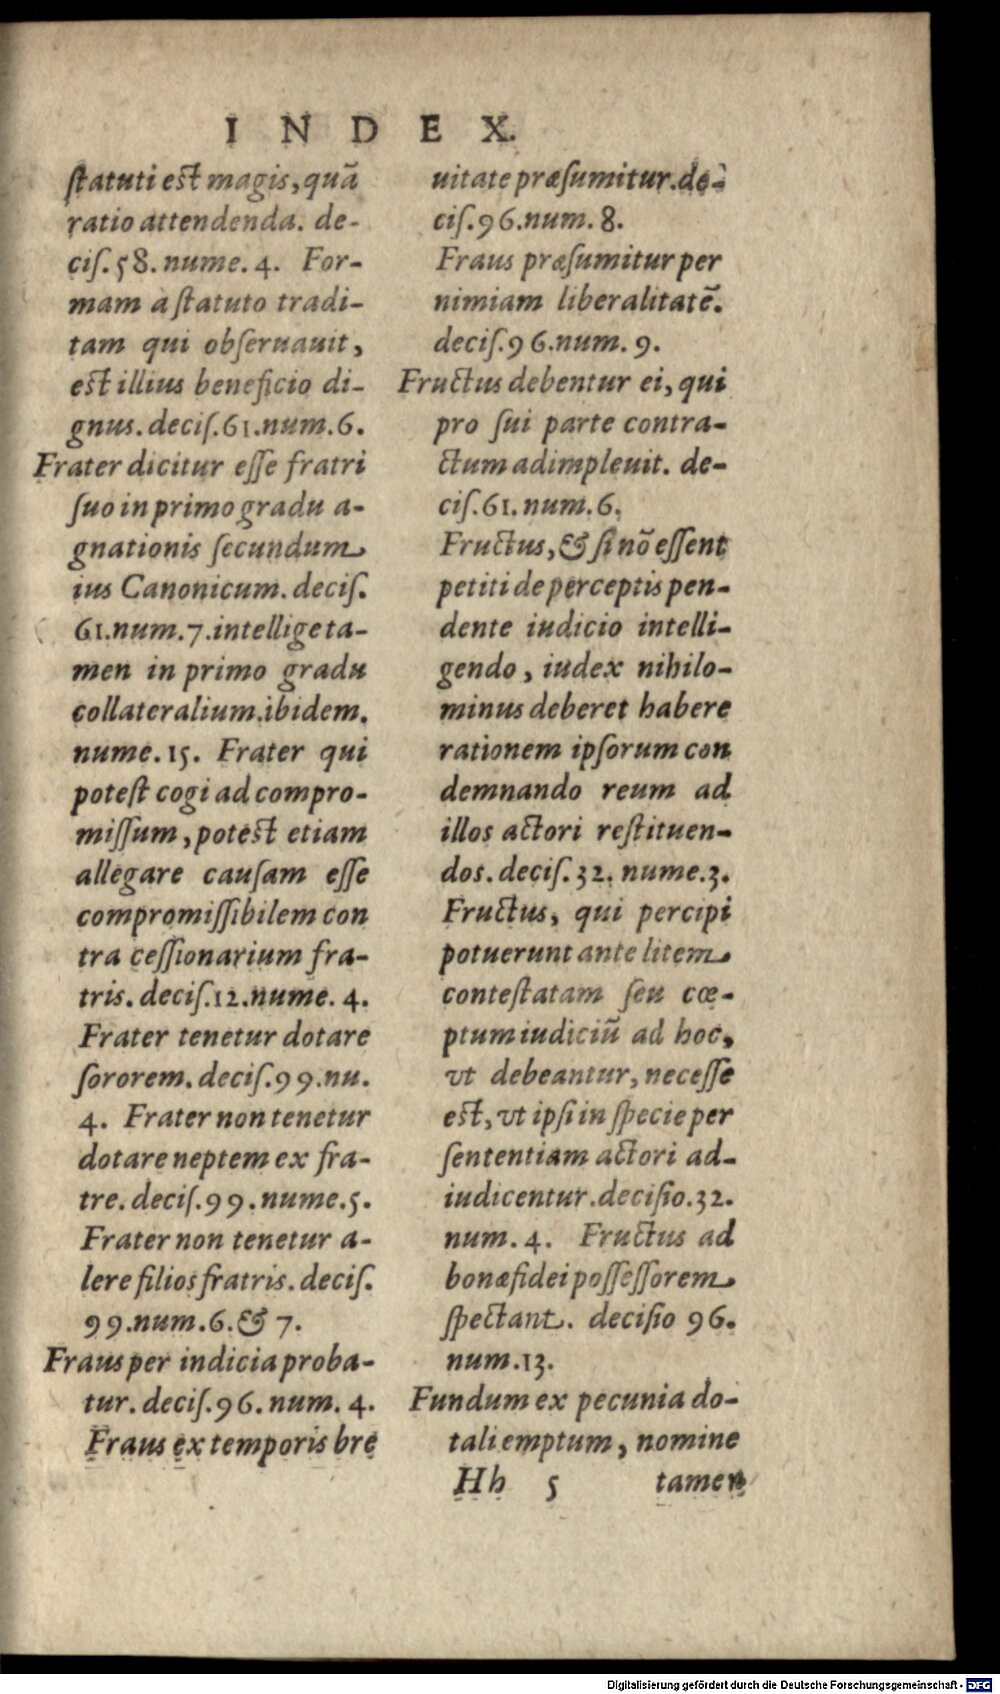 INDEX.
ſtatuti eſt magis, quã
ratio attendenda. de-
ciſ. 58. nume. 4. For-
mam a ſtatuto tradi-
tam qui obſeruauit,
eſt illius beneficio di-
gnus. deciſ. 61. num. 6.
Frater dicitur eſſe fratri
ſuo in primo gradu a-
gnationis ſecundum
ius Canonicum. deciſ.
61. num. 7. intellige ta-
men in primo gradu
collateralium. ibidem.
nume. 15. Frater qui
poteſt cogi ad compro-
miſſum, poteſt etiam
allegare cauſam eſſe
compromiſſibilem con
tra ceſſionarium fra-
tris. deciſ. 12. nume. 4.
Frater tenetur dotare
ſororem. deciſ. 99. nu.
4. Frater non tenetur
dotare neptem ex fra-
tre. deciſ. 99. nume. 5.
Frater non tenetur a-
lere filios fratris. deciſ.
99. num. 6. & 7.
Fraus per indicia proba-
tur. deciſ. 96. num. 4.
Fraus ex temporis bre
uitate præſumitur. de-
ciſ. 96. num. 8.
Fraus præſumitur per
nimiam liberalitatẽ.
deciſ. 96. num. 9.
Fructus debentur ei, qui
pro ſui parte contra-
ctum adimpleuit. de-
ciſ. 61. num. 6.
Fructus, & ſi nõ eſſent
petiti de perceptis pen-
dente iudicio intelli-
gendo, iudex nihilo-
minus deberet habere
rationem ipſorum con
demnando reum ad
illos actori reſtituen-
dos. deciſ. 32. nume. 3.
Fructus, qui percipi
potuerunt ante litem
conteſtatam ſeu cœ-
ptum iudiciũ ad hoc,
vt debeantur, neceſſe
eſt, vt ipſi in ſpecie per
ſententiam actori ad-
iudicentur. deciſio. 32.
num. 4. Fructus ad
bonæ fidei poſſeſſorem
ſpectant. deciſio 96.
num. 13.
Fundum ex pecunia do-
tali emptum, nomine
Hh 5 tamen
Digitalisierung gefördert durch die Deutsche Forschungsgemeinschaft - DFG